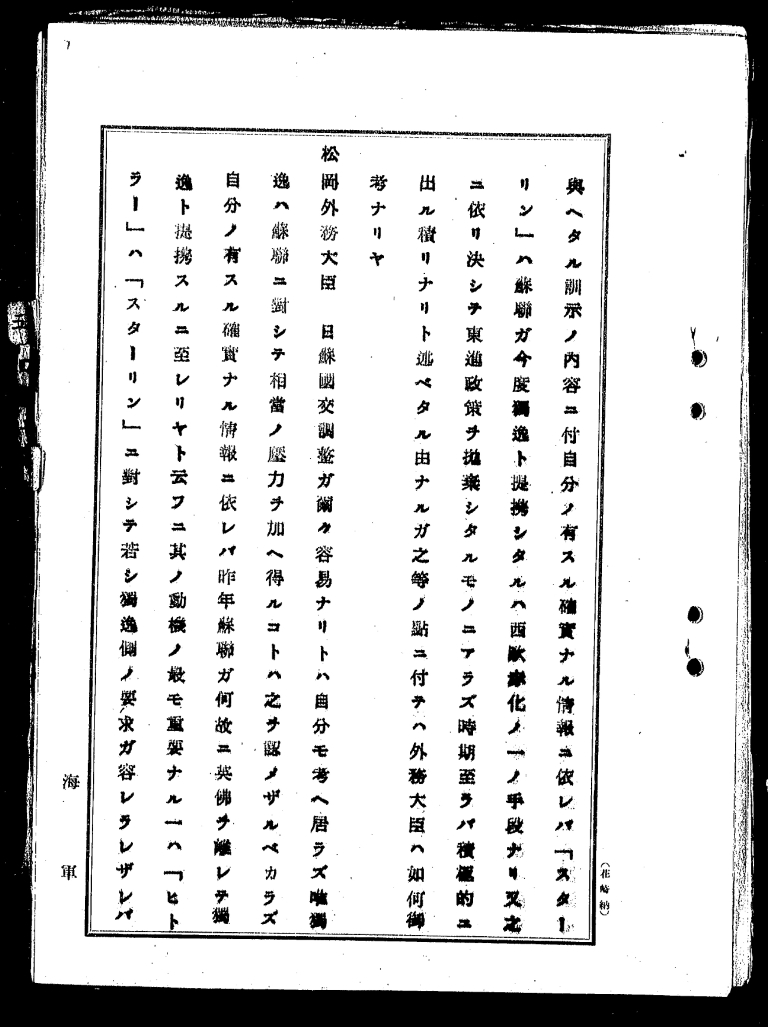 與ヘタル訓示ノ內容ニ付自分ノ有スル確實ナル情報ニ依レバ「スター
リン」ハ蘇聯ガ今度獨逸ト提携シタルハ西歐赤化ノ一ノ手段ナリ又之
ニ依リ決シテ東進政策ヲ抛棄シタルモノニアラズ時期至ラバ積極的ニ
出ル積リナリト述ベタル由ナルガ之等ノ點ニ付テハ外務大臣ハ如何御
考ナリヤ
松岡外務大臣　日蘇國交調整ガ爾ク容易ナリトハ自分モ考ヘ居ラズ唯獨
逸ハ蘇聯ニ對シテ相當ノ壓力ヲ加ヘ得ルコトハ之ヲ認メザルベカラズ
自分ノ有スル確實ナル情報ニ依レバ昨年蘇聯ガ何故ニ英佛ヲ離レテ獨
逸ト提携スルニ至レリヤト云フニ其ノ動機ノ最モ重要ナル一ハ「ヒト
ラー」ハ「スターリン」ニ對シテ若シ獨逸側ノ要求ガ容レラレザレバ
海軍
7